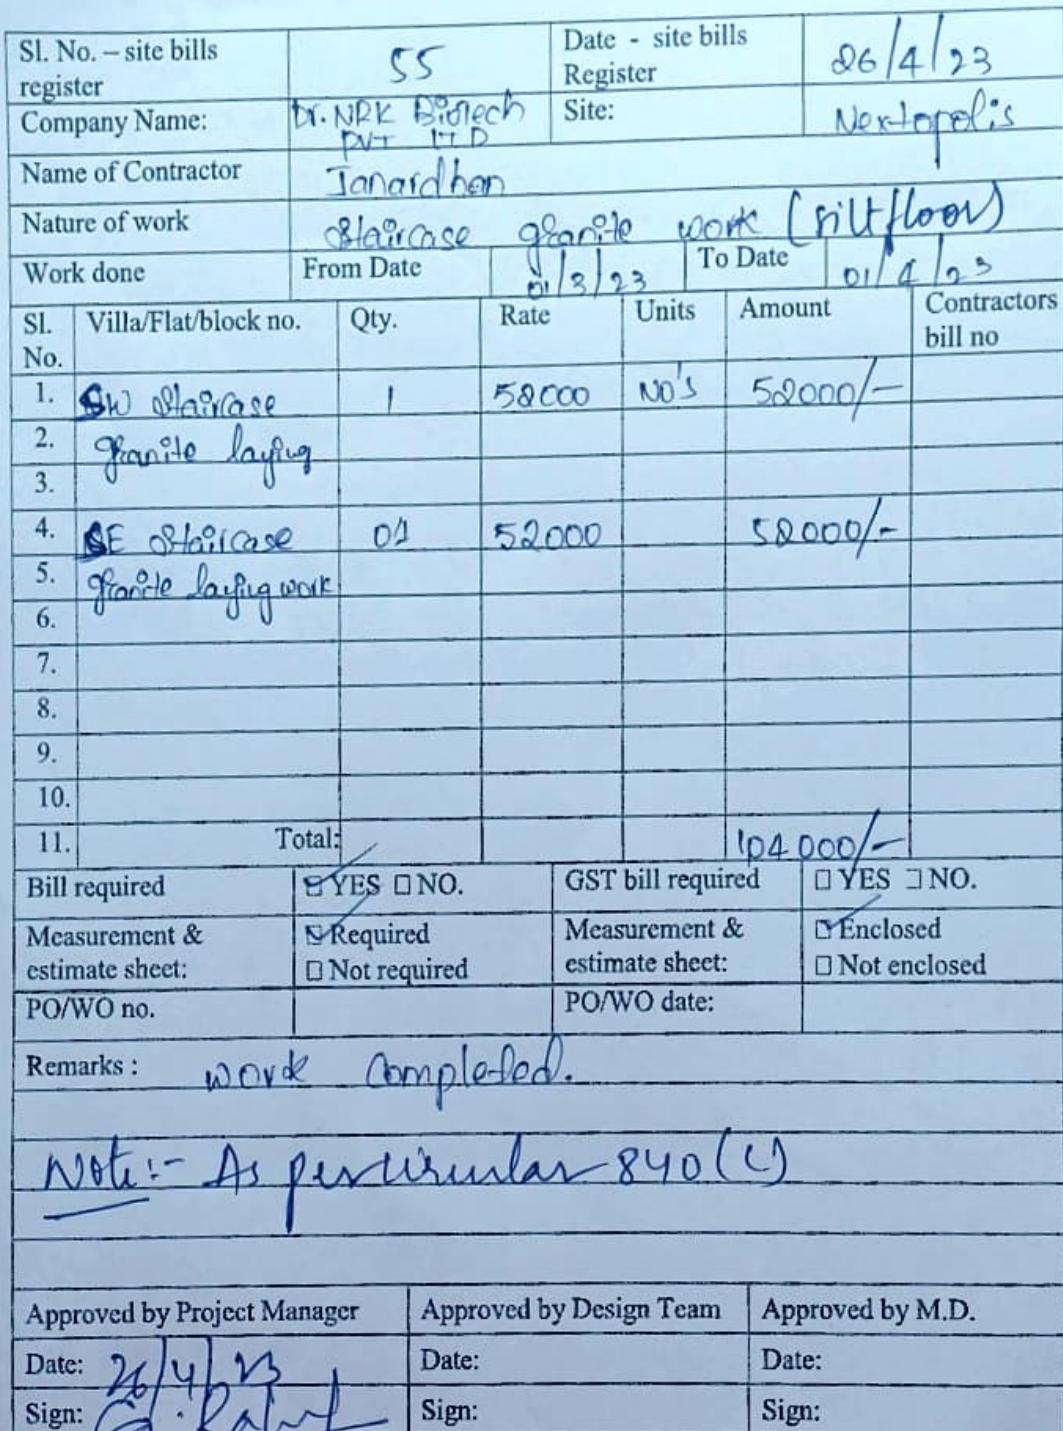 Sl. No. – site bills register 55 Date - site bills Register 26/4/23
Company Name: Dr. NRK Biotech PVT LTD Site: Nextopolis
Name of Contractor Janardhan
Nature of work Staircase granite work (stilt floor)
Work done From Date 01/3/23 To Date 01/4/23
Sl. No. Villa/Flat/block no. Qty. Rate Units Amount Contractors bill no
1. SW Staircase 1 52000 NO's 52000/-
2. granite laying
3.
4. SE Staircase 01 52000 52000/-
5. granite laying work
6.
7.
8.
9.
10.
11. Total: 104000/-
Bill required ☑YES ☐NO. GST bill required ☐YES ☐NO.
Measurement & estimate sheet: ☑Required ☐Not required Measurement & estimate sheet: ☑Enclosed ☐Not enclosed
PO/WO no. PO/WO date:
Remarks : work completed.
Note:- As per circular 840 (c)
Approved by Project Manager Approved by Design Team Approved by M.D.
Date: 26/4/23 Date: Date:
Sign: Sign: Sign: